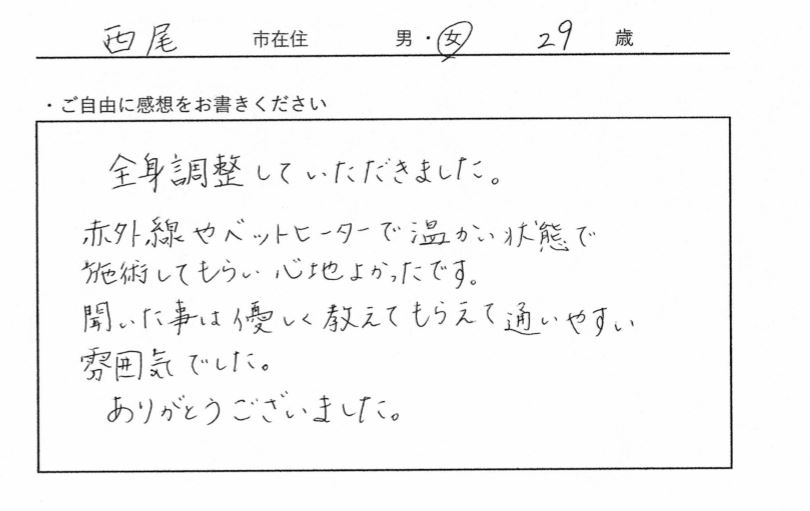 西尾 市在住 男・女 29 歳
・ご自由に感想をお書きください
全身調整していただきました。
赤外線やベットヒーターで温かい状態で
施術してもらい心地よかったです。
聞いた事は優しく教えてもらえて通いやすい
雰囲気でした。
ありがとうございました。